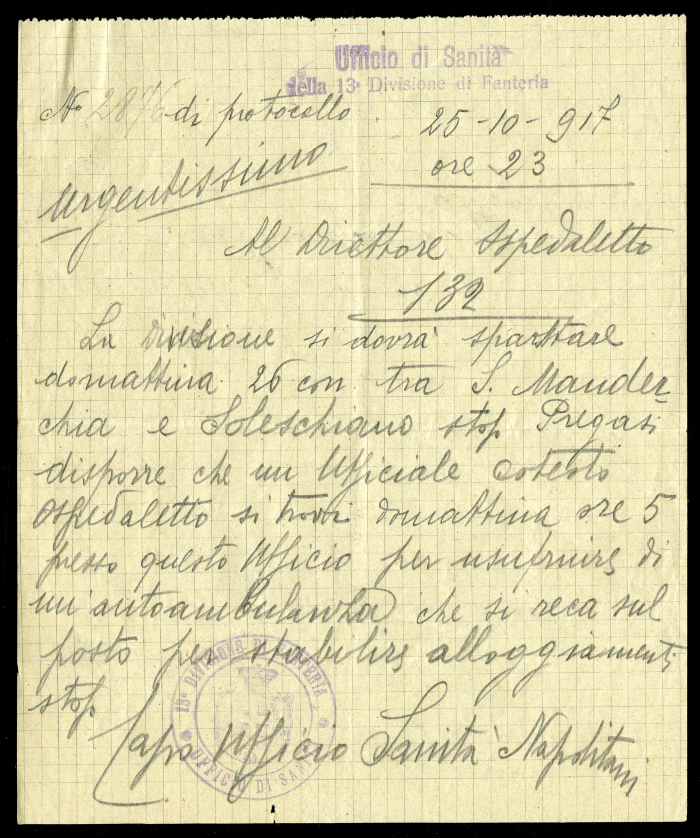 Ufficio di Sanità
della 13ª Divisione di Fanteria
Nº 2876 di protocollo
25-10-917
ore 23
urgentissimo
Al Direttore Ospedaletto
132
La Divisione si dovrà spostare
domattina 26 con tra S. Mander-
chia e Soleschiano stop Pregasi
disporre che un Ufficiale cotesto
Ospedaletto si trovi domattina ore 5
presso questo Ufficio per usufruire di
un'autoambulanza che si reca sul
posto per stabilire alloggiamenti
stop
Capo Ufficio Sanità Napolitani
13ª DIVISIONE DI FANTERIA
UFFICIO DI SANITÀ